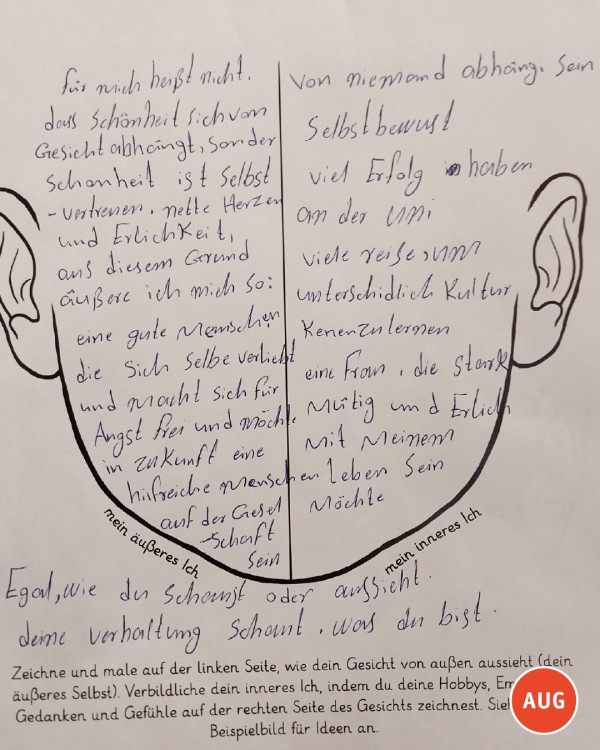 für mich heißt nicht.
dass Schönheit sich von
Gesicht abhängt, sonder
Schonheit ist Selbst
- vertreuen. nette Herzen
und Erlichkeit,
aus diesem Grund
äußere ich mich so:
eine gute Menschen
die sich Selbe verliebt
und macht sich für
Angst frei und möchte
in zukunft eine
hilfreiche menschen
auf der Gesel
-schaft
sein
mein äußeres Ich
von niemand abhäng. sein
Selbstbewust
viel Erfolg haben
an der uni
viele reise, um
unterschidlich Kultur
Kenenzulernen
eine Frau, die stark
Mutig und Erlich
mit Meinem
Leben Sein
Möchte
mein inneres Ich
Egal, wie du schaust oder aussicht.
deine verhaltung Schaut, was du bist.
Zeichne und male auf der linken Seite, wie dein Gesicht von außen aussieht (dein
äußeres Selbst). Verbildliche dein inneres Ich, indem du deine Hobbys,
Gedanken und Gefühle auf der rechten Seite des Gesichts zeichnest.
Beispielbild für Ideen an.
AUG